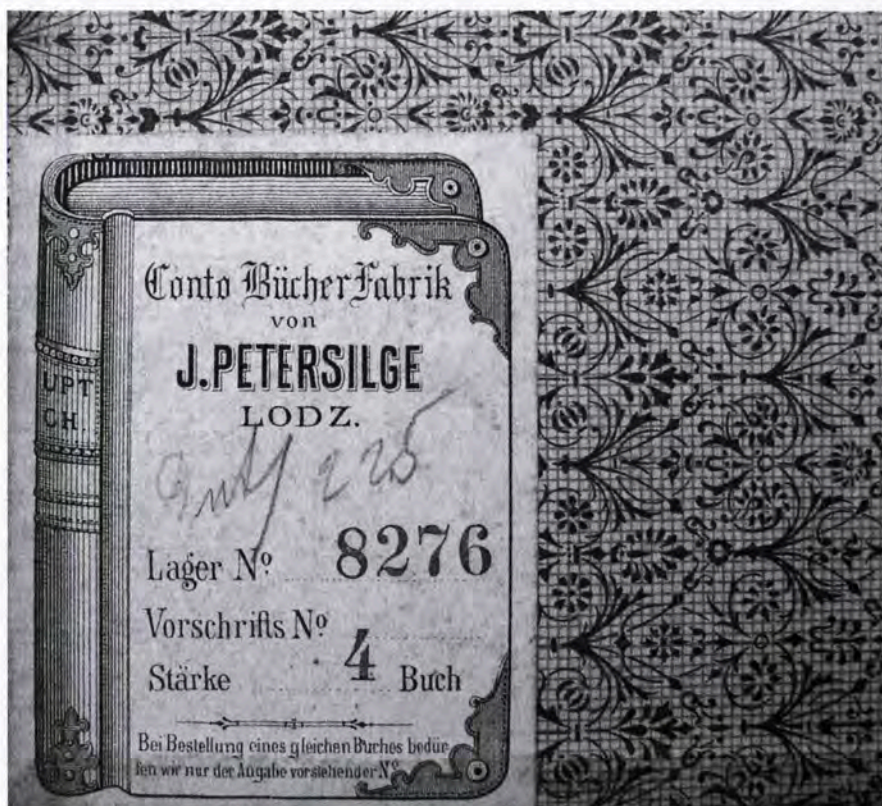 Conto Bücher Fabrik
von
J. PETERSILGE
LODZ.
225
Lager Nº 8276
Vorschrifts Nº
Stärke 4 Buch
Bei Bestellung eines gleichen Buches bedür-
fen wir nur der Angabe vorstehender Nº
UPT
CH.